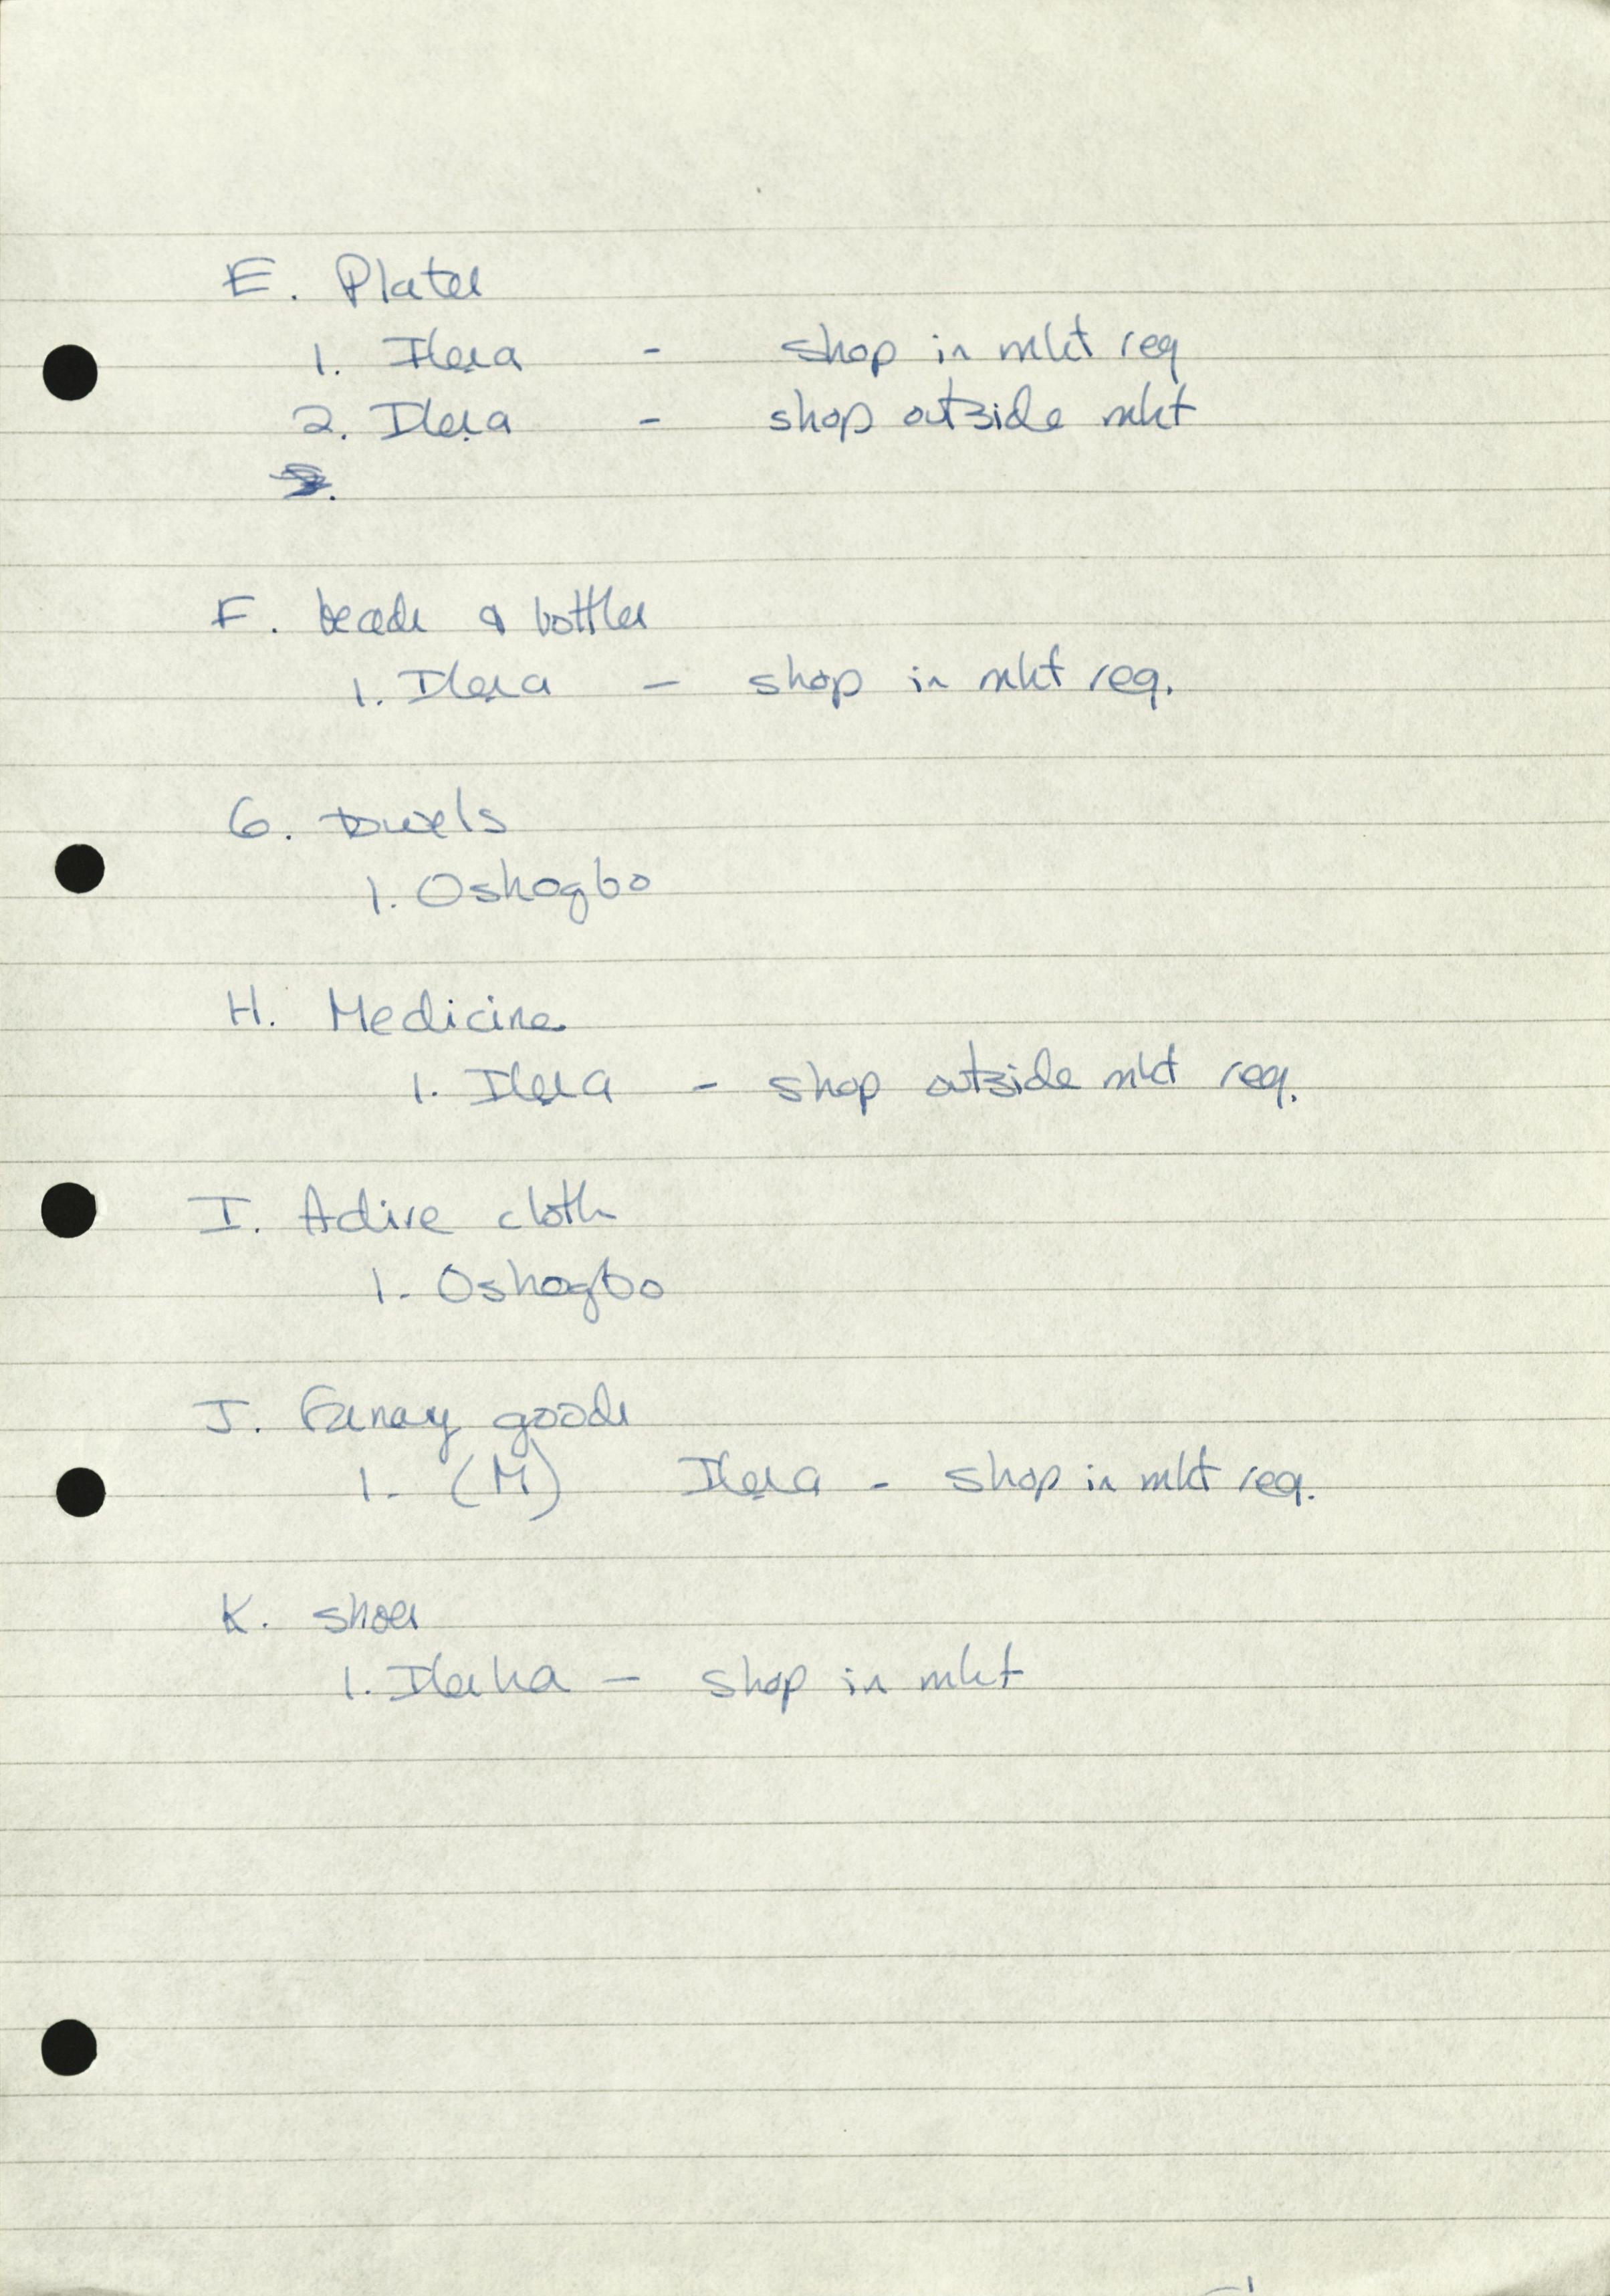 E. Plates
1. Ilesa - shop in mkt req
2. Ilesa - shop outside mkt
3.
F. beads & bottles
1. Ilesa - shop in mkt req.
G. towels
1. Oshogbo
H. Medicine
1. Ilesa - shop outside mkt req.
I. Adire cloth
1. Oshogbo
J. Fancy goods
1. (M) Ilesa - shop in mkt req.
K. shoes
1. Ilesha - shop in mkt